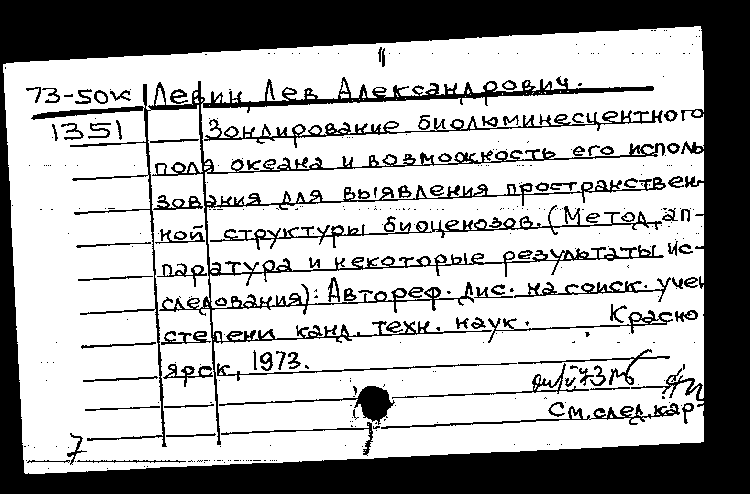 73-50к Левин, Лев Александрович.
1351 Зондирование биолюминесцентного
поля океана и возможность его исполь
зования для выявления пространствен-
ной структуры биоценозов. (Метод, ап-
паратура и некоторые результаты ис-
следования): Автореф. дис. на соиск. учен
степени канд. техн. наук. Красно
ярск, 1973.
См. след. кар
7